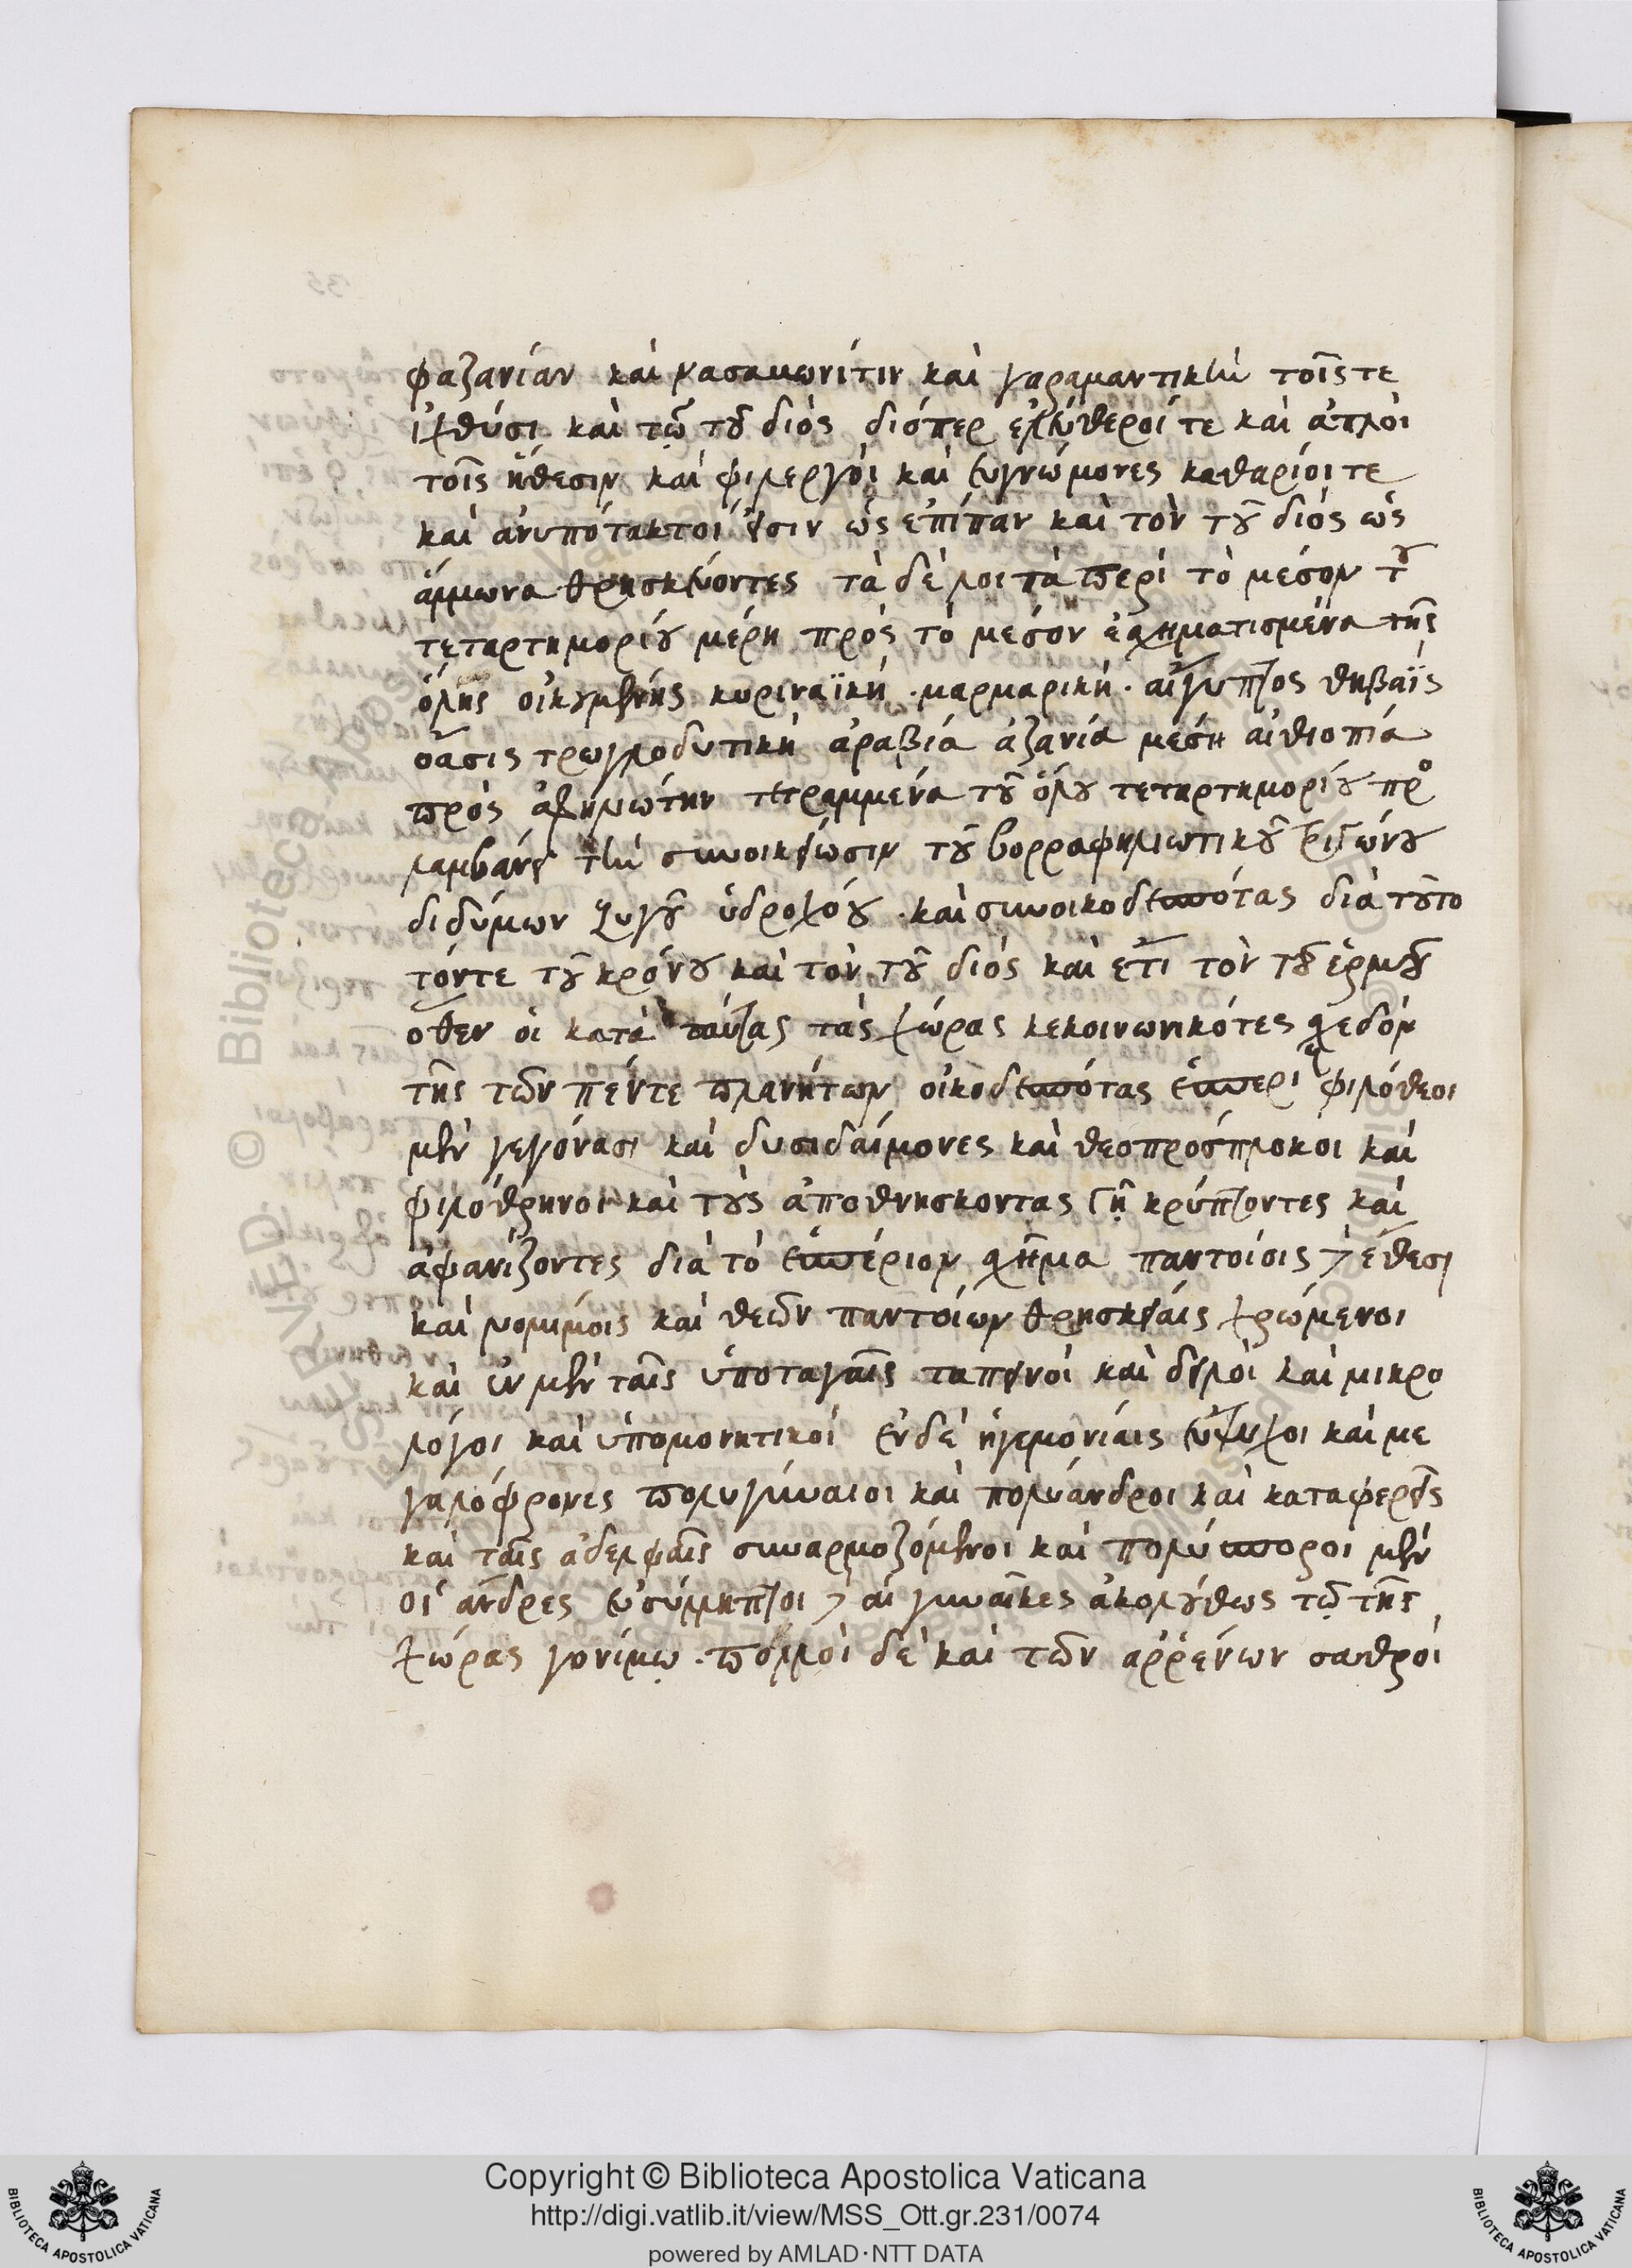 φαζανίαν καὶ νασαμωνίτιν καὶ γαραμαντικὴν τοῖς τε
ἰχθύσι καὶ τῷ τοῦ διός διόπερ ἐλεύθεροί τε καὶ ἁπλοὶ
τοῖς ἤθεσιν καὶ φιλεργοὶ καὶ εὐγνώμονες καθαρίοι τε
καὶ ἀνυπότακτοί εἰσιν ὡς ἐπίπαν καὶ τὸν τοῦ διός ὡς
ἄμμωνα θρησκεύοντες τὰ δὲ λοιπὰ περὶ τὸ μέσον τοῦ
τεταρτημορίου μέρη πρὸς τὸ μέσον ἐσχηματισμένα τῆς
ὅλης οἰκουμένης κυριναϊκή · μαρμαρική · αἴγυπτος θηβαΐς
ὄασις τρωγλοδυτική ἀραβία ἀζανία μέση αἰθιοπία
πρὸς ἀφηλιώτην τετραμμένα τοῦ ὅλου τεταρτημορίου προ
λαμβάνει τὴν συνοικείωσιν τοῦ βορραφηλιωτικοῦ τριγώνου
διδύμων ζυγοῦ ὑδροχόου · καὶ συνοικοδεσπότας διὰ τοῦτο
τόν τε τοῦ κρόνου καὶ τὸν τοῦ διός καὶ ἔτι τὸν τοῦ ἑρμοῦ
ὅθεν οἱ κατὰ ταύτας τὰς χώρας κεκοινωνικότες σχεδὸν
τῆς τῶν πέντε πλανήτων οἰκοδεσπότας ἑσπερι φιλόθεοι
μὲν γεγόνασι καὶ δυσιδαίμονες καὶ θεοπρόσπλοκοι καὶ
φιλόθρηνοι καὶ τοὺς ἀποθνήσκοντας γῇ κρύπτοντες καὶ
ἀφανίζοντες διὰ τὸ ἑσπέριον σχῆμα παντοίοις δὲ ἔθεσι
καὶ νομίμοις καὶ θεῶν παντοίων θρησκείαις χρώμενοι
καὶ ἐν μὲν ταῖς ὑποταγαῖς ταπεινοὶ καὶ δειλοὶ καὶ μικρο
λόγοι καὶ ὑπομονητικοί ἐν δὲ ἡγεμονίαις εὔψυχοι καὶ με
γαλόφρονες πολυγύναιοι καὶ πολύανδροι καὶ καταφερεῖς
καὶ ταῖς ἀδελφαῖς συναρμοζόμενοι καὶ πολύσποροι μὲν
οἱ ἄνδρες εὐσύλληπτοι δὲ αἱ γυναῖκες ἀκολούθως τῷ τῆς
χώρας γονίμῳ · πολλοὶ δὲ καὶ τῶν ἀρρένων σαθροὶ
© Biblioteca Apostolica Vaticana
Copyright © Biblioteca Apostolica Vaticana
http://digi.vatlib.it/view/MSS_Ott.gr.231/0074
powered by AMLAD·NTT DATA
BIBLIOTECA APOSTOLICA VATICANA
BIBLIOTECA APOSTOLICA VATICANA